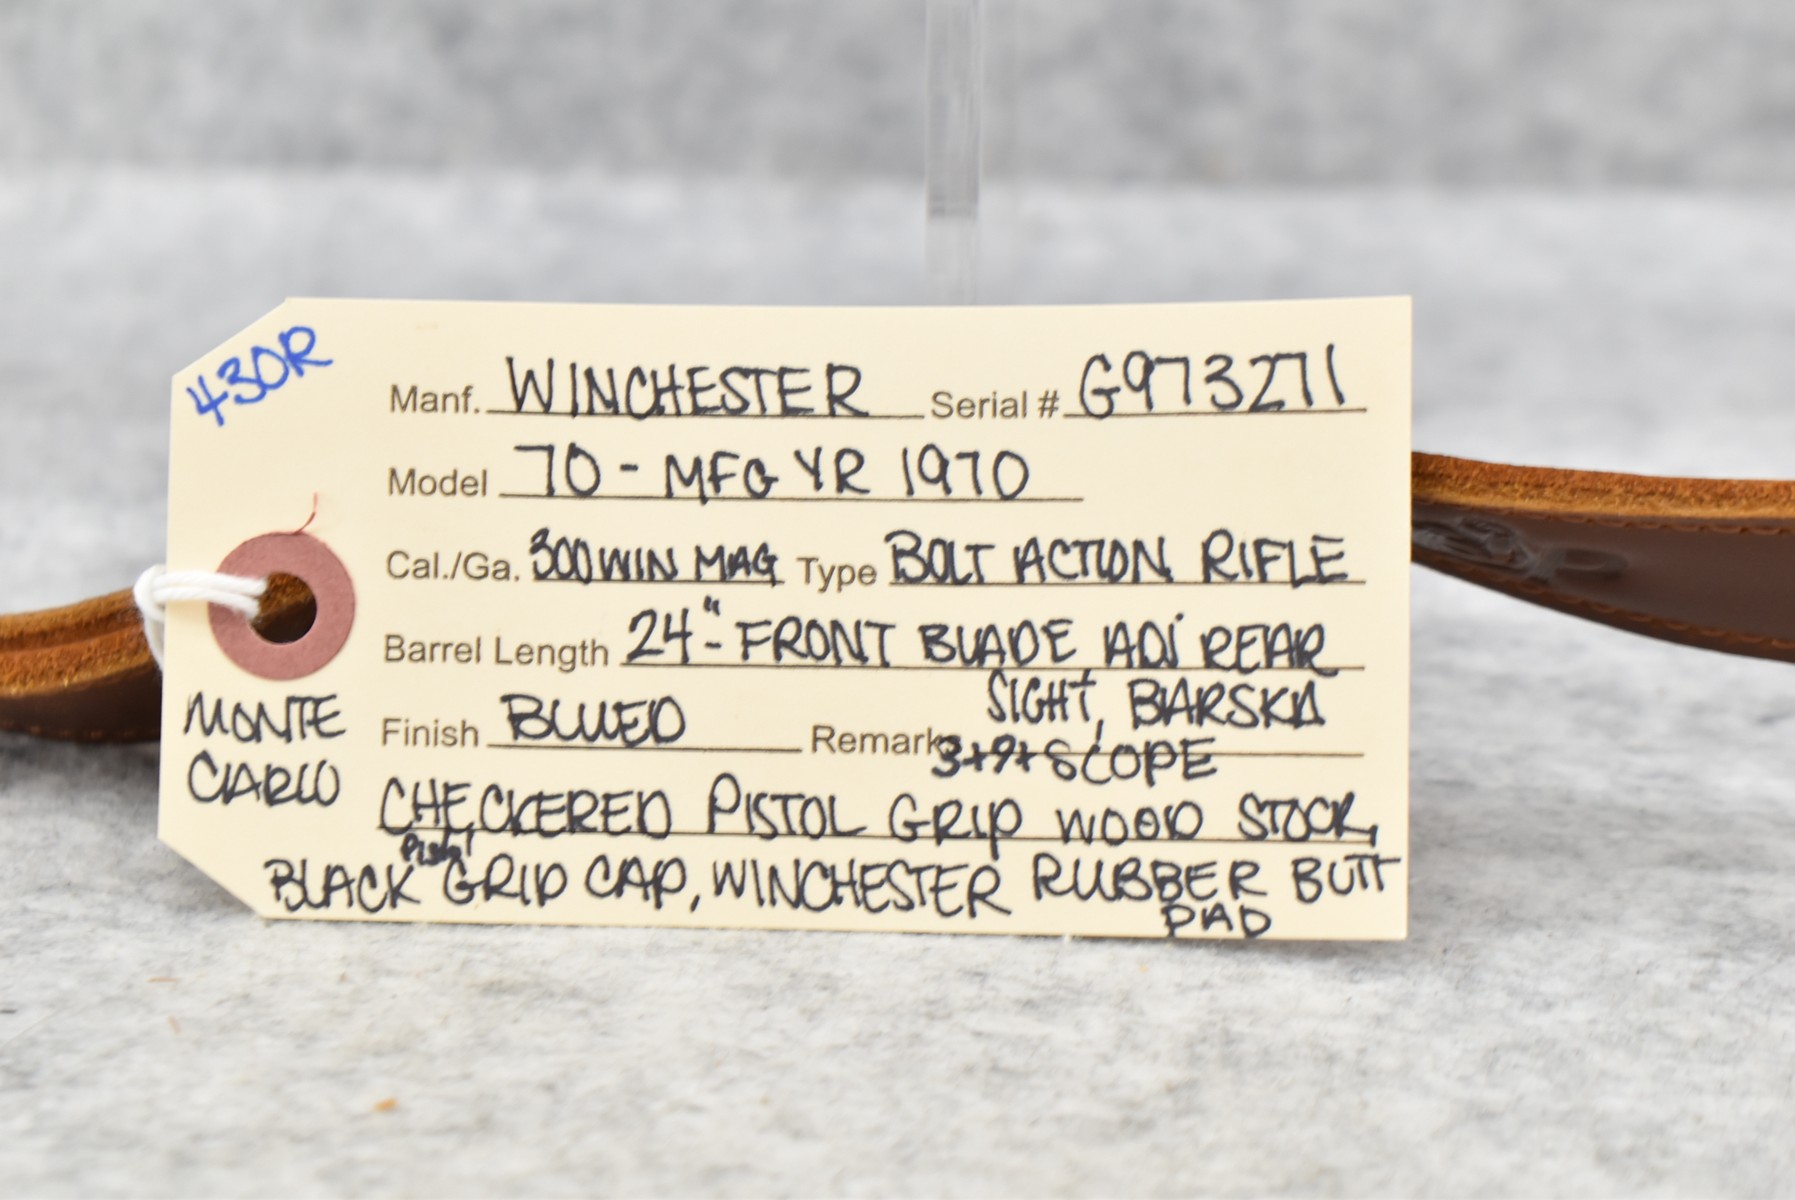 430R
Manf. WINCHESTER Serial # G973271
Model 70 - MFG YR 1970
Cal./Ga. 300 WIN MAG Type BOLT ACTION RIFLE
Barrel Length 24" - FRONT BLADE, ADJ REAR
SIGHT, BARSKA
Finish BLUED Remarks
3+9+ SCOPE
MONTE
CARLO
CHECKERED PISTOL GRIP WOOD STOCK,
BLACK Pistol GRIP CAP, WINCHESTER RUBBER BUTT
PAD